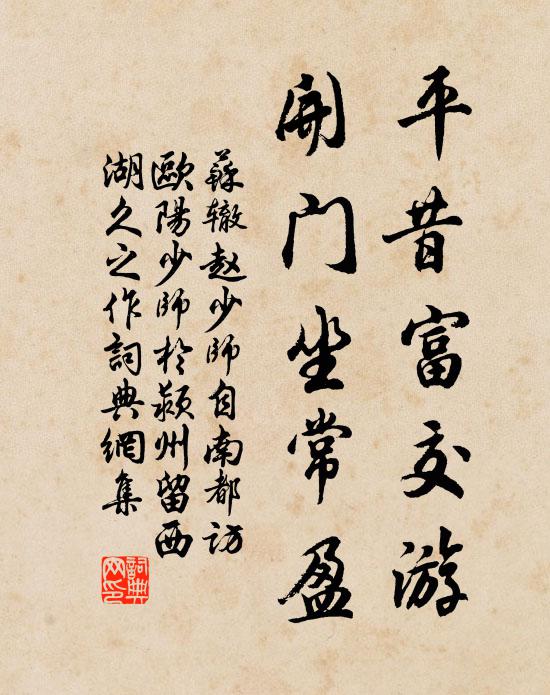 平昔富交游
開門坐常盈
蘇辙赵少师自南都访
歐陽少师於颍州留西
湖久之作詞典網集
詞典网印